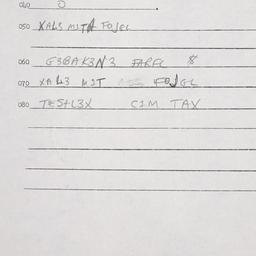 040 O
050 XAL3 MITA FOJEL
060 G3BAK3N3 FARFL 8
070 XAL3 MIT FOJGL
080 TESTL3X CIM TAX